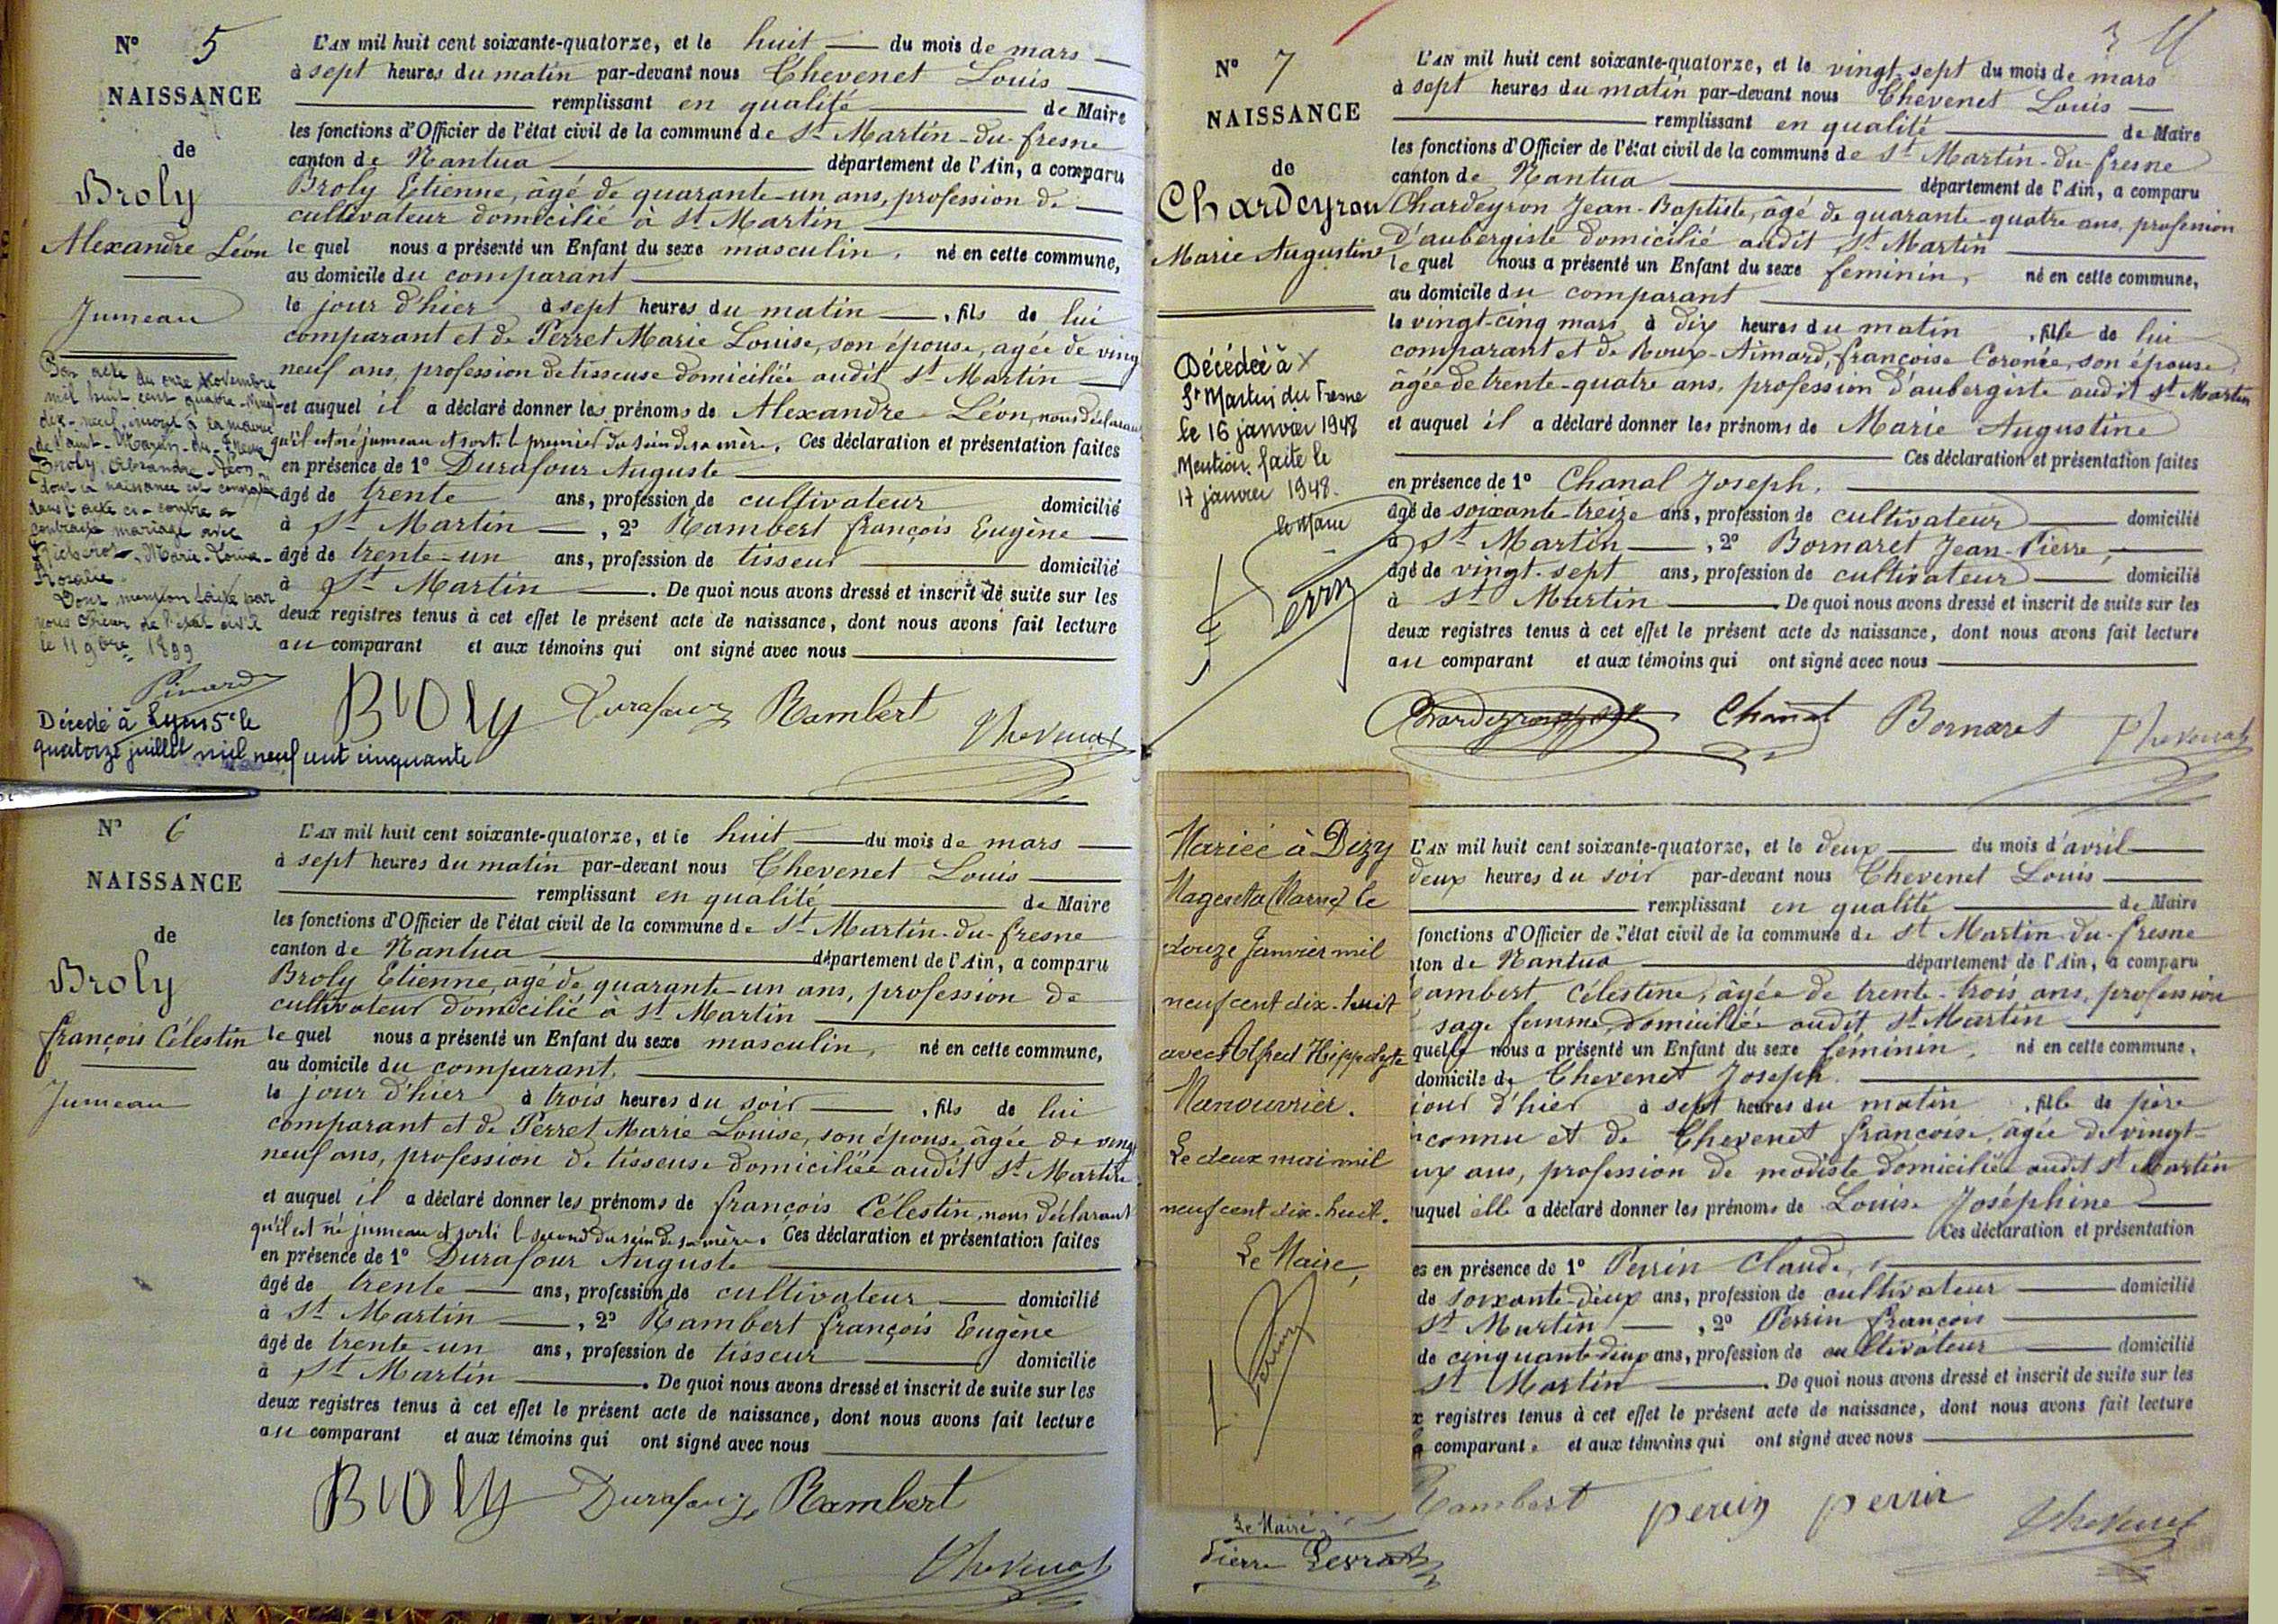 N° 5
NAISSANCE
de
Broly
Alexandre Léon
Jumeau
Par acte du onze Novembre
mil huit cent quatre-vingt
dix-neuf, inscrit à la mairie
de Saint-Martin-du-Fresne
Broly Alexandre Léon
dont la naissance est constatée
dans l'acte ci-contre a
contracté mariage avec
Marie-Louise
Rosalie
Dont mention faite par
nous officier de l'état civil
le 11 9bre 1899
Pinard
Décédé à Lyon 5e le
quatorze juillet mil neuf cent cinquante
L'AN mil huit cent soixante-quatorze, et le huit du mois de mars
à sept heures du matin par-devant nous Chevenet Louis
remplissant en qualité de Maire
les fonctions d'Officier de l'état civil de la commune de St Martin-du-fresne
canton de Nantua département de l'Ain, a comparu
Broly Etienne, âgé de quarante-un ans, profession de
cultivateur domicilié à St Martin
le quel nous a présenté un Enfant du sexe masculin, né en cette commune,
au domicile du comparant
le jour d'hier à sept heures du matin, fils de lui
comparant et de Perret Marie Louise, son épouse, agée de vingt
neuf ans, profession de tisseuse domiciliée audit St Martin
et auquel il a déclaré donner les prénoms de Alexandre Léon, nous déclarant
qu'il est né jumeau et sorti le premier du sein de sa mère. Ces déclaration et présentation faites
en présence de 1° Durafour Auguste
âgé de trente ans, profession de cultivateur domicilié
à St Martin, 2° Rambert françois Eugène
âgé de trente-un ans, profession de tisseur domicilié
à St Martin. De quoi nous avons dressé et inscrit de suite sur les
deux registres tenus à cet effet le présent acte de naissance, dont nous avons fait lecture
au comparant et aux témoins qui ont signé avec nous
Broly Durafour Rambert
Chevenet
N° 6
NAISSANCE
de
Broly
françois Célestin
Jumeau
L'AN mil huit cent soixante-quatorze, et le huit du mois de mars
à sept heures du matin par-devant nous Chevenet Louis
remplissant en qualité de Maire
les fonctions d'Officier de l'état civil de la commune de St Martin-du-fresne
canton de Nantua département de l'Ain, a comparu
Broly Etienne, agé de quarante-un ans, profession de
cultivateur domicilié à St Martin
le quel nous a présenté un Enfant du sexe masculin, né en cette commune,
au domicile du comparant,
le jour d'hier à trois heures du soir, fils de lui
comparant et de Perret Marie Louise, son épouse, âgée de vingt
neuf ans, profession de tisseuse domiciliée audit St Martin
et auquel il a déclaré donner les prénoms de françois Célestin, nous déclarant
qu'il est né jumeau et sorti le second du sein de sa mère. Ces déclaration et présentation faites
en présence de 1° Durafour Auguste
âgé de trente ans, profession de cultivateur domicilié
à St Martin, 2° Rambert françois Eugène
âgé de trente-un ans, profession de tisseur domicilié
à St Martin. De quoi nous avons dressé et inscrit de suite sur les
deux registres tenus à cet effet le présent acte de naissance, dont nous avons fait lecture
au comparant et aux témoins qui ont signé avec nous
Broly Durafour Rambert
Chevenet
N° 7
NAISSANCE
de
Chardeyron
Marie Augustine
Décédée à
St Martin du Fresne
le 16 janvier 1948
Mention faite le
17 janvier 1948.
Le Maire
L'AN mil huit cent soixante-quatorze, et le vingt-sept du mois de mars
à sept heures du matin par-devant nous Chevenet Louis
remplissant en qualité de Maire
les fonctions d'Officier de l'état civil de la commune de St Martin-du-fresne
canton de Nantua département de l'Ain, a comparu
Chardeyron Jean-Baptiste, âgé de quarante-quatre ans, profession
d'aubergiste domicilié audit St Martin
le quel nous a présenté un Enfant du sexe feminin, né en cette commune,
au domicile du comparant
le vingt-cinq mars à dix heures du matin, fille de lui
comparant et de Roux-Aimard, françoise Coronée, son épouse,
âgée de trente-quatre ans, profession d'aubergiste audit St Martin
et auquel il a déclaré donner les prénoms de Marie Augustine
Ces déclaration et présentation faites
en présence de 1° Chanal Joseph,
âgé de soixante-treize ans, profession de cultivateur domicilié
à St Martin, 2° Bornaret Jean-Pierre,
âgé de vingt-sept ans, profession de cultivateur domicilié
à St Martin De quoi nous avons dressé et inscrit de suite sur les
deux registres tenus à cet effet le présent acte de naissance, dont nous avons fait lecture
au comparant et aux témoins qui ont signé avec nous
Chardeyron Chanal Bornaret Chevenet
Mariée à Dizy
Magenta (Marne) le
douze Janvier mil
neuf cent dix-huit
avec Alfred Hippolyte
Manouvrier.
Le deux mai mil
neuf cent dix-huit.
Le Maire,
Le Maire
Pierre Levrat
L'AN mil huit cent soixante-quatorze, et le deux du mois d'avril
deux heures du soir par-devant nous Chevenet Louis
remplissant en qualité de Maire
fonctions d'Officier de l'état civil de la commune de St Martin-du-fresne
nton de Nantua département de l'Ain, a comparu
ambert Célestine, âgée de trente-trois ans, profession
sage femme, domiciliée audit St Martin
quelle nous a présenté un Enfant du sexe féminin, né en cette commune,
domicile de Chevenet Joseph.
jour d'hier à sept heures du matin, fille de père
connu et de Chevenet françoise, agée de vingt-
ux ans, profession de modiste domiciliée audit St Martin
uquel elle a déclaré donner les prénoms de Louise Joséphine
Ces déclaration et présentation
es en présence de 1° Perrin Claude,
de soixante-deux ans, profession de cultivateur domicilié
St Martin, 2° Perrin François
de cinquante-deux ans, profession de cultivateur domicilié
St Martin. De quoi nous avons dressé et inscrit de suite sur les
x registres tenus à cet effet le présent acte de naissance, dont nous avons fait lecture
comparant, et aux témoins qui ont signé avec nous
Rambert perrin perrin Chevenet